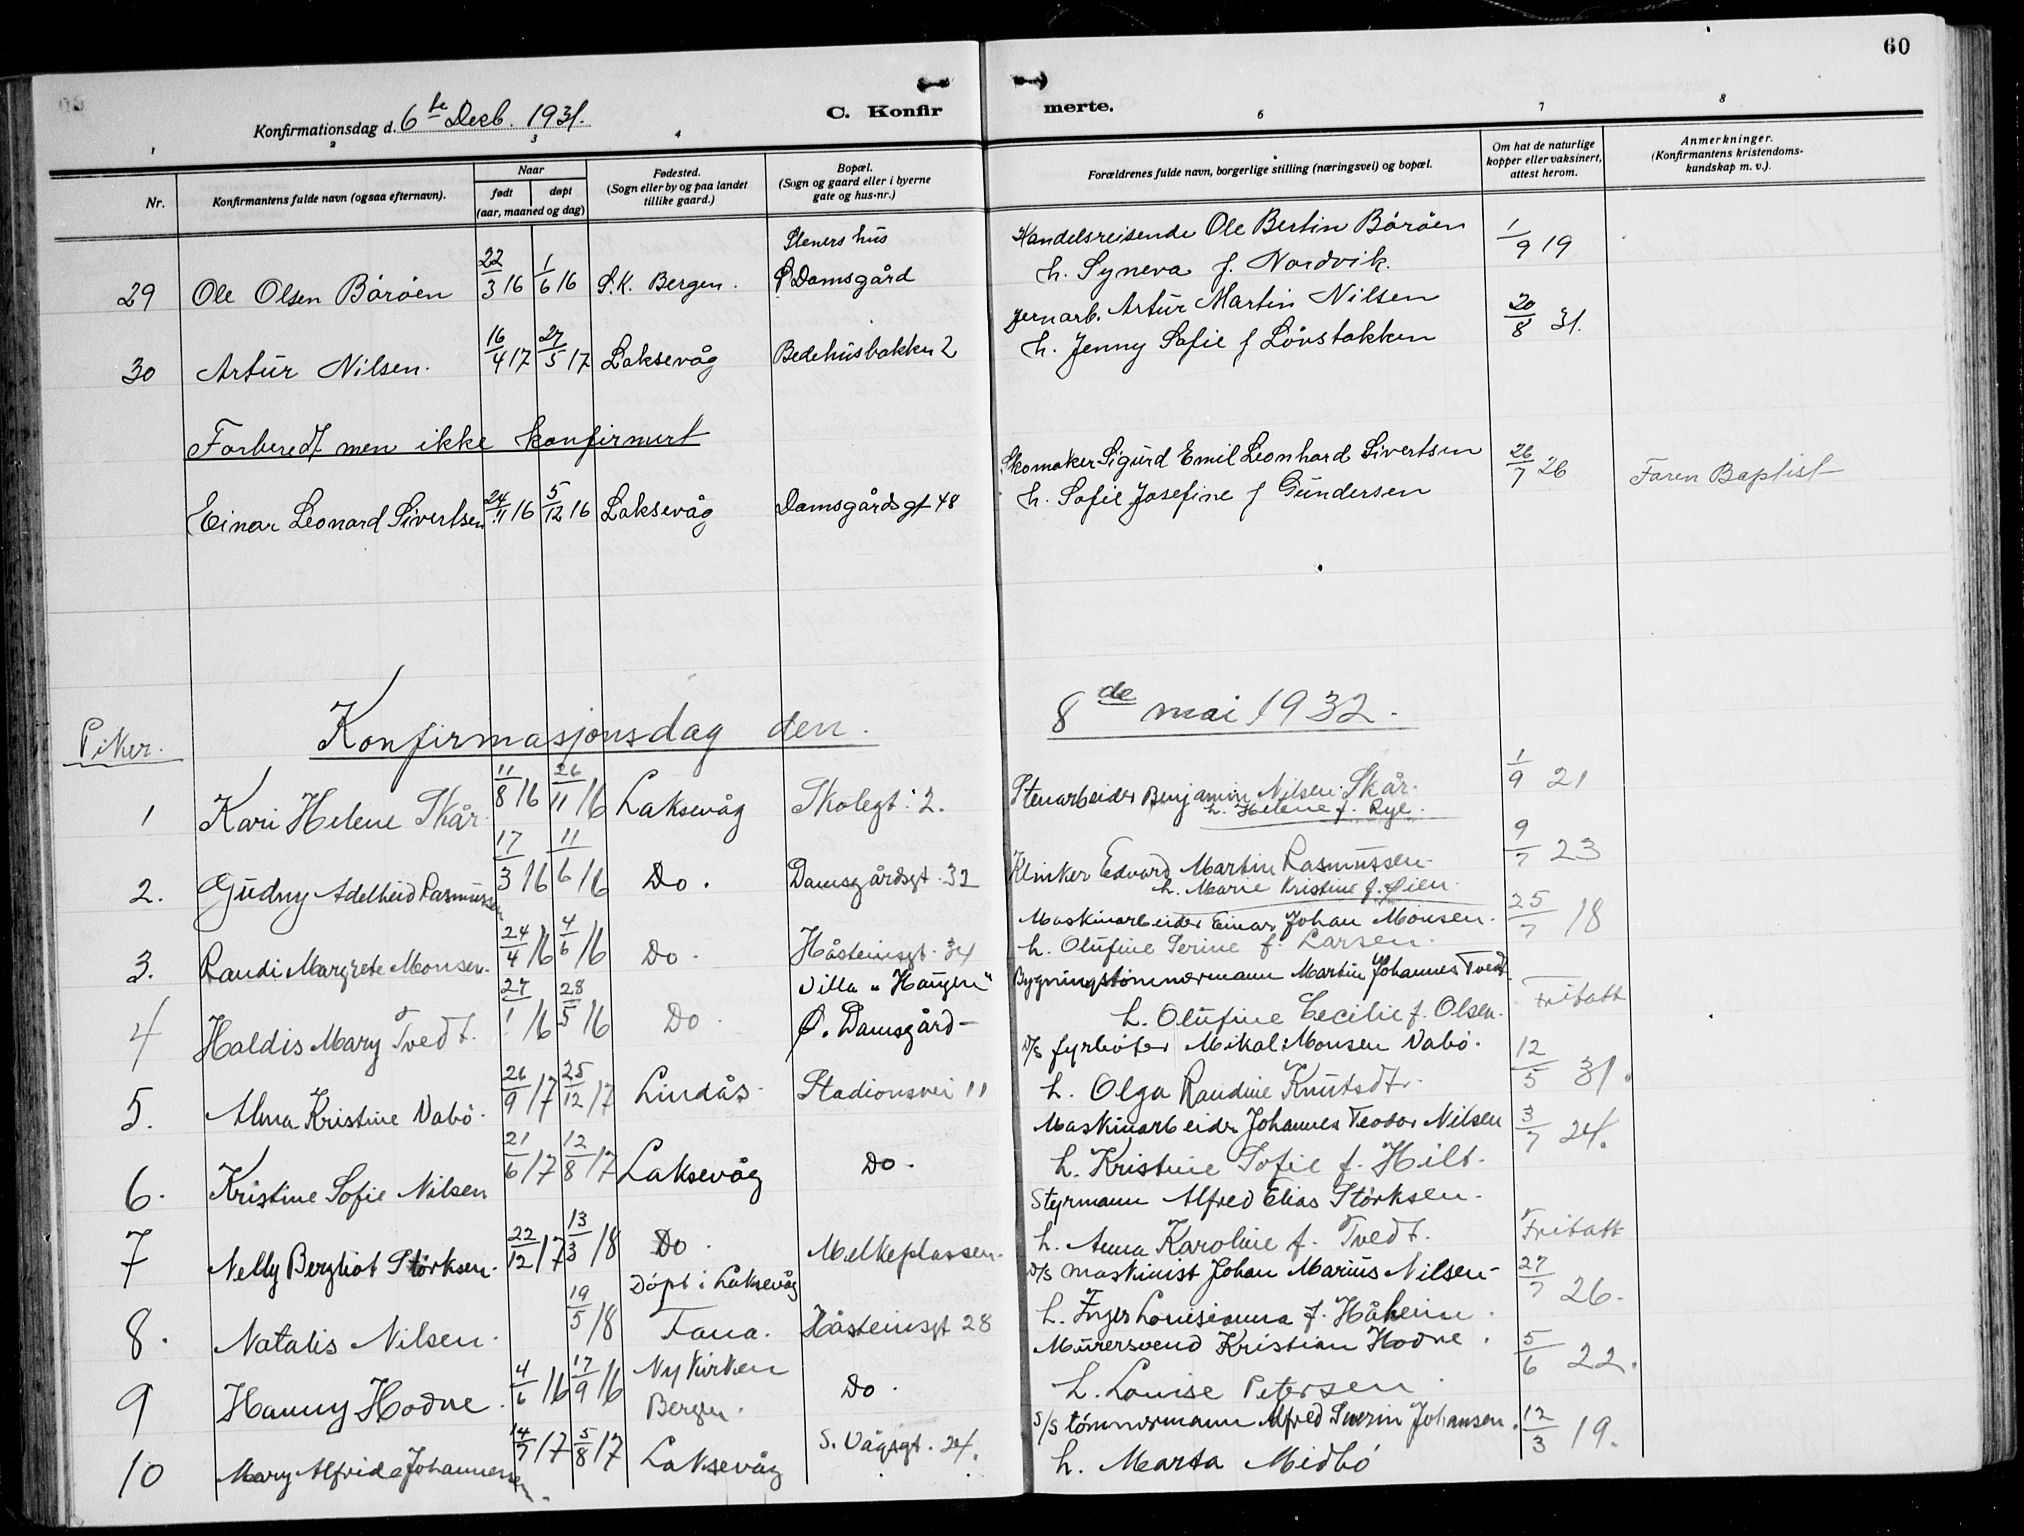 60
Konfirmationsdag d. 6te Desb. 1931.
C. Konfirmerte.
1 2 3 4 6 7 8
Nr.
Konfirmantens fulde navn (ogsaa efternavn).
Naar
født døpt
(aar, maaned og dag)
Fødested.
(Sogn eller by og paa landet
tillike gaard.)
Bopæl.
(Sogn og gaard eller i byerne
gate og hus-nr.)
Forældrenes fulde navn, borgerlige stilling (næringsvei) og bopæl.
Om hat de naturlige
kopper eller vaksinert,
attest herom.
Anmerkninger.
(Konfirmantens kristendoms-
kundskap m. v.).
Steners hus
29 Ole Olsen Böröen 22/3 16 1/6 16 S.K. Bergen. Ø Damsgård
Handelsreisende Ole Bertin Böröen 1/9 19
h. Syneva f. Nordvik.
30 Artur Nilsen. 16/4 17 27/5 17 Laksevåg Bedehusbakken 2
Jernarb. Artur Martin Nilsen 20/8 31.
h. Jenny Sofie f Lövstakken
Forbered men ikke konfirmert
Einar Leonard Sivertsen 24/11 16 5/12 16 Laksevåg Damsgårdsgt 48
Skomaker Sigurd Emil Leonhard Sivertsen 26/7 26 Faren Baptist
h. Sofie Josefine f Gundersen
Piker. Konfirmasjonsdag den. 8de mai 1932.
1 Kari Helene Skår. 11/8 16 26/11 16 Laksevåg Skolegt. 2.
Stenarbeider Benjamin Nilsen Skår. 1/9 21
h. Helene f. Rye.
2. Gudny Adelheid Rasmussen 17/3 16 11/6 16 Do. Damsgårdsgt. 32
Klinker Edvard Martin Rasmussen. 9/7 23
h. Marie Kristine f. Øien.
3. Randi Margrete Monsen. 24/4 16 4/6 16 Do. Håsteinsgt. 34
Maskinarbeider Einar Johan Monsen. 25/7 18
h. Olufine Serine f. Larsen.
Villa "Haugen"
4 Haldis Mary Tvedt. 27/1 16 28/5 16 Do. Ø. Damsgård
Bygningstömmermann Martin Johannes Tvedt. Fritatt
h. Olufine Cecilie f. Olsen.
5. Alma Kristine Vabö. 26/9 17 25/12 17 Lindås. Stadionsvei 11
D/S fyrböter Mikal Monsen Vabö. 12/5 31.
h. Olga Raudine Knutsdtr.
6. Kristine Sofie Nilsen 21/6 17 12/8 17 Laksevåg Do.
Maskinarbeider Johannes Teodor Nilsen 3/7 24.
h. Kristine Sofie f. Hilt.
7 Nelly Bergliot Störksen. 22/12 17 13/3 18 Do. Melkeplassen.
Styrmann Alfred Elias Störksen.
h. Anna Karoline f. Tvedt. Fritatt
Döpt i Laksevåg
8. Natalis Nilsen. 19/5 18 Fana. Håsteinsgt 28
D/S maskinist Johan Marius Nilsen 27/7 26.
h. Inger Louisianna f. Håheim.
9 Hanny Hodne. 4/6 16 17/9 16 Nykirken Bergen. Do.
Murersvend Kristian Hodne. 5/6 22.
h. Louise Petersen
10 Mary Alfrida Johannessen. 14/7 17 5/8 17 Laksevåg S. Vågsgt. 24.
S/S tömmermann Alfred Severin Johansen. 12/3 19.
h. Marta Midbö